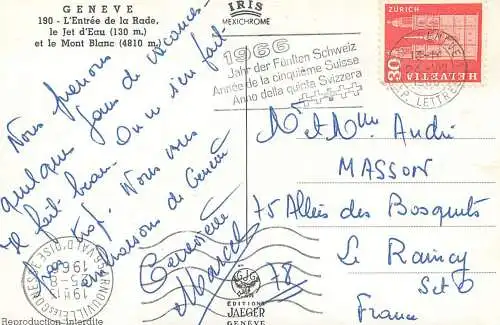 GENEVE
190 - L'Entrée de la Rade,
le Jet d'Eau (130 m.)
et le Mont Blanc (4810 m.)
IRIS
MEXICHROME
Nous prenons
quelques jours de vacances
Il fait beau. On ne s'en fait
pas trop. Nous vous
embrassons de Genève
Geneviève
Marcel
1966
Jahr der Fünften Schweiz
Année de la cinquième Suisse
Anno della quinta Svizzera
ZÜRICH
30
HELVETIA
LETTRES
M et Mme André
MASSON
75 Allées des Bosquets
Le Raincy
78 S et O
France
GARNOUVILLE LES GONESSE
VAL D'OISE
19H15
25-8
1966
EDITIONS
JAEGER
GENEVE
Reproduction Interdite